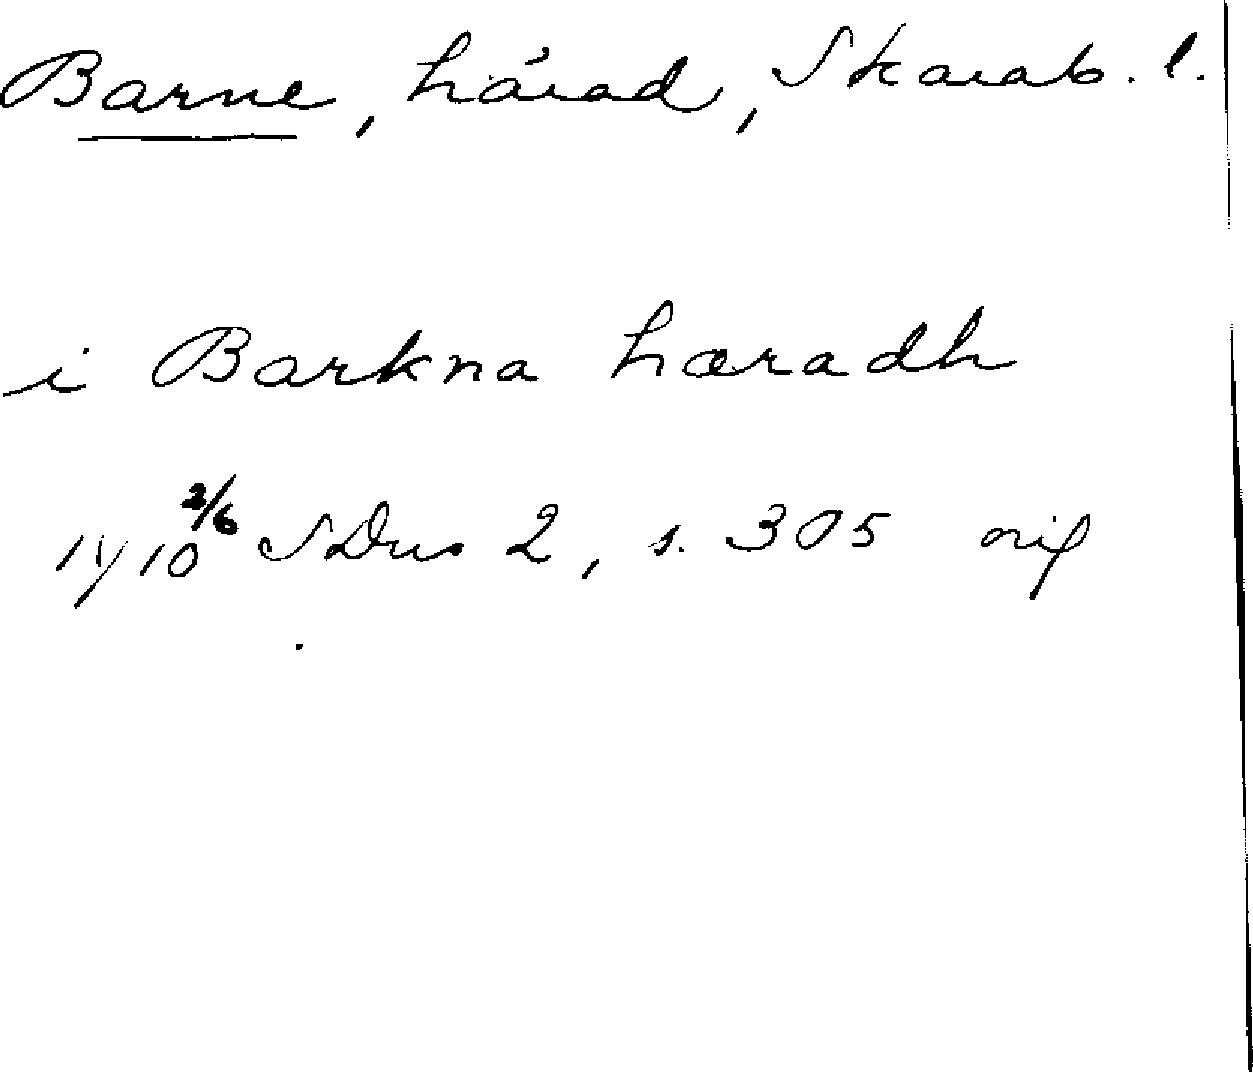 Barne, härad, Skarab. l.
i Barkna hæradh
1410 2/6 SDns 2, s. 305 orig